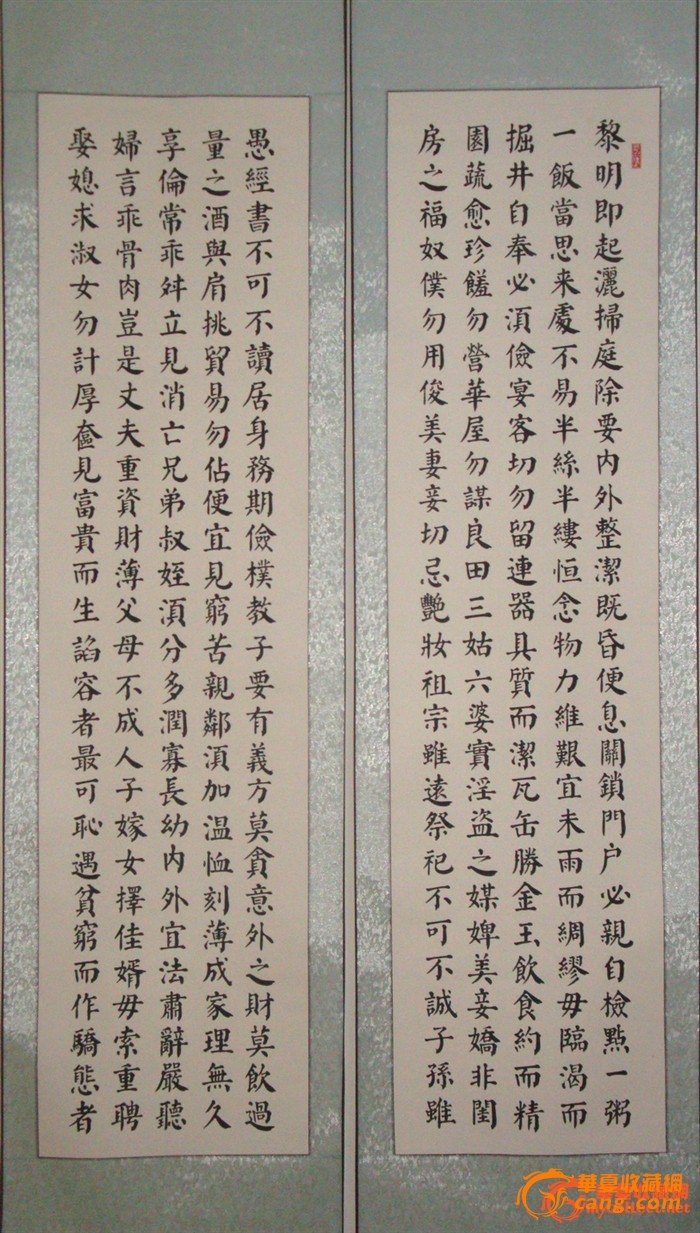 黎明即起灑掃庭除要内外整潔既昏便息關鎖門户必親自檢點一粥
一飯當思来處不易半絲半縷恒念物力維艱宜未雨而綢繆毋臨渴而
掘井自奉必湏儉宴客切勿留連器具質而潔瓦缶勝金玉飲食約而精
園蔬愈珍饈勿營華屋勿謀良田三姑六婆實淫盗之媒婢美妾嬌非閨
房之福奴僕勿用俊美妻妾切忌艷妝祖宗雖遠祭祀不可不誠子孫雖
愚經書不可不讀居身務期儉樸教子要有義方莫貪意外之財莫飲過
量之酒與肩挑貿易勿佔便宜見窮苦親鄰湏加温恤刻薄成家理無久
享倫常乖舛立見消亡兄弟叔姪湏分多潤寡長幼内外宜法肅辭嚴聽
婦言乖骨肉豈是丈夫重資財薄父母不成人子嫁女擇佳婿毋索重聘
娶媳求淑女勿計厚奩見富貴而生諂容者最可恥遇貧窮而作驕態者
華夏收藏網
cang.com